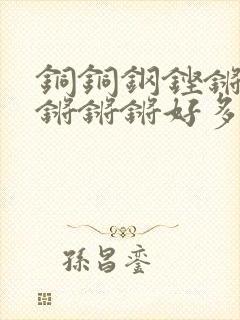 銅銅鋼鏗鏘
鏘鏘鏘好多
孫昌銮